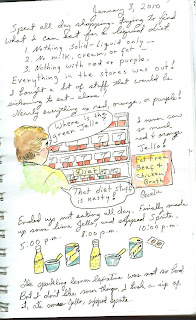 January 3, 2010
Spent all day shopping, trying to find
what I can eat for a liquid diet
1. Nothing solid - liquid only -
2. No milk, cream, or fat -
3. Nothing with red or purple.
Everything in the stores was out!
I bought a lot of stuff that would be
sickening to eat - since
Nearly everything is red, orange, or purple!
Where is the green Jello?
I never saw
so much red
and orange
Jello!
Diet
Fat Free
Beef &
Chicken
Broth
That diet stuff
is nasty!
Ended up not eating all day. Finally made
up some lime Jello, and sipped Sprite.
5:00 p.m.
8:00 p.m.
10:00 p.m.
The sparkling lemon laxative was not so bad.
But I don't like sour things. I took a sip of
it, ate some Jello, sipped Sprite.